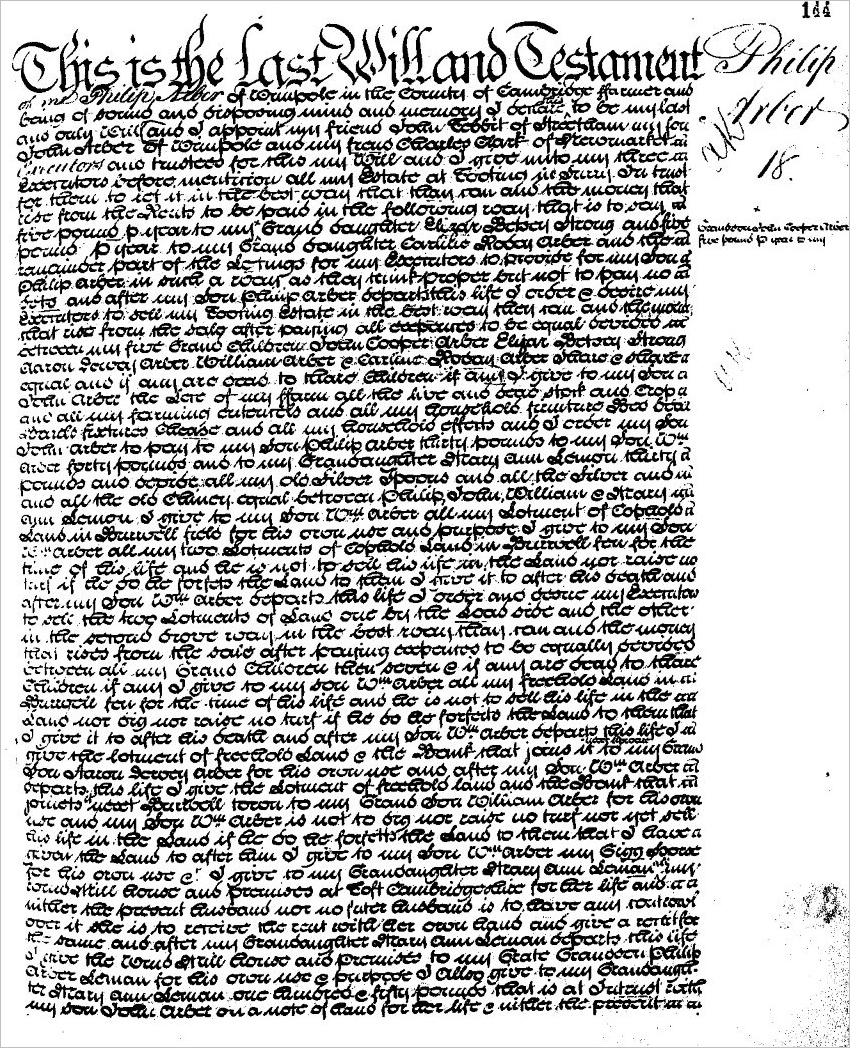 144
This is the Last Will and Testament
Philip
Arber
18.
of me Philip Arber of Wimpole in the County of Cambridge ffarmer and
being of sound and disposing mind and memory I declare to be my last
and only Will and I appoint my friend John Ebbit of Stretham my son
John Arber of Wimpole and my friend Charles Clark of Newmarket
Executors and trustees for this my Will and I give unto my three
Executors before mention all my Estate at Tooting in Surry In trust
for them to let it in the best way that they can and the money that
rise from the Rents to be paid in the following way that is to say
Grandson John Cooper Arber
five pound P year to my
five pound P year to my Grand daughter Elizar Betsey Strong and five
pound P year to my Grand daughter Carline Roday Arber and the
remainder part of the Letings for my Executors to provide for my Son
Philip Arber in such a way as they think proper but not to pay no
dets and after my Son Philip Arber departs this life I order & desire my
Executors to sell my Tooting Estate in the best way they can and the money
that rise from the sale after paying all expences to be equal devided
between my five Grand Children John Cooper Arber Elizar Betsey Strong
Aaron Dewey Arber William Arber & Carline Roday Arber share & share
equal and if any are dead to thare Children if any I give to my Son
John Arber the Lece of my ffarm all the live and dead stock and Crop
and all my farming utentels and all my household furniture Bed
and all my household efferts and I order my Son
John Arber to pay to my Son Philip Arber thirty pounds to my Son Wm
Arber forty pounds and to my Grandaughter Mary Ann Lemon thirty
pounds and all my old Silver Spoons and all the Silver and
and all the old Chaney equal between Philip, John, William & Mary
Ann Lemon I give to my Son Wm Arber all my Lotment of Cophold
Land in Burwell field for his own use and purpose I give to my Son
Wm Arber all my two Lotments of Cophold Land in Burwell fen for the
time of his life and he is not to sell his life in the Land nor raise no
turf if he do he forfets the Land to them I give it to after his death and
after my Son Wm Arber departs this life I order and desire my Executors
to sell the two Lotments of Land one by the Load side and the other
in the second drove way in the best way they can and the money
that rises from the sale after paying expences to be equally devided
between all my Grand Children then seven & if any are dead to thare
Children if any I give to my son Wm Arber all my freehold Land in
Burwell fen for the time of his life and he is not to sell his life in the
Land nor dig nor raise no turf if he do he forfets the Land to them that
I give it to after his death and after my Son Wm Arber departs this life I
give the lotment of freehold Land & the Bank that joins it to my Grand
Son Aaron Dewey Arber for his own use and after my Son Wm Arber
departs this life I give the Lotment of freehold land and the Bank that
joinets next Burwell town to my Grand Son William Arber for his own
use and my Son Wm Arber is not to dig nor raise no turf nor yet sell
his life in the Land if he do he forfetts the Land to them that I have
given the Land to after him I give to my Son Wm Arber my Gigg Horse
for his own use &c I give to my Grandaughter Mary Ann Leman my
Wind Mill house and Premises at Toft Cambridgeshire for her life and
nither the present husband nor no futer husband is to have any controwl
over it she is to receive the rent with her own hand and give a recet for
the same and after my Grandaughter Mary Ann Leman departs this life
I give the Wind Mill house and Premises to my Grate Grandson Philip
Arber Leman for his own use & purpose I Allso give to my Grandaugh
ter Mary Ann Leman one hundred & fifty pounds that is at Intrust with
my son John Arber on a note of hand for her life & nither the present